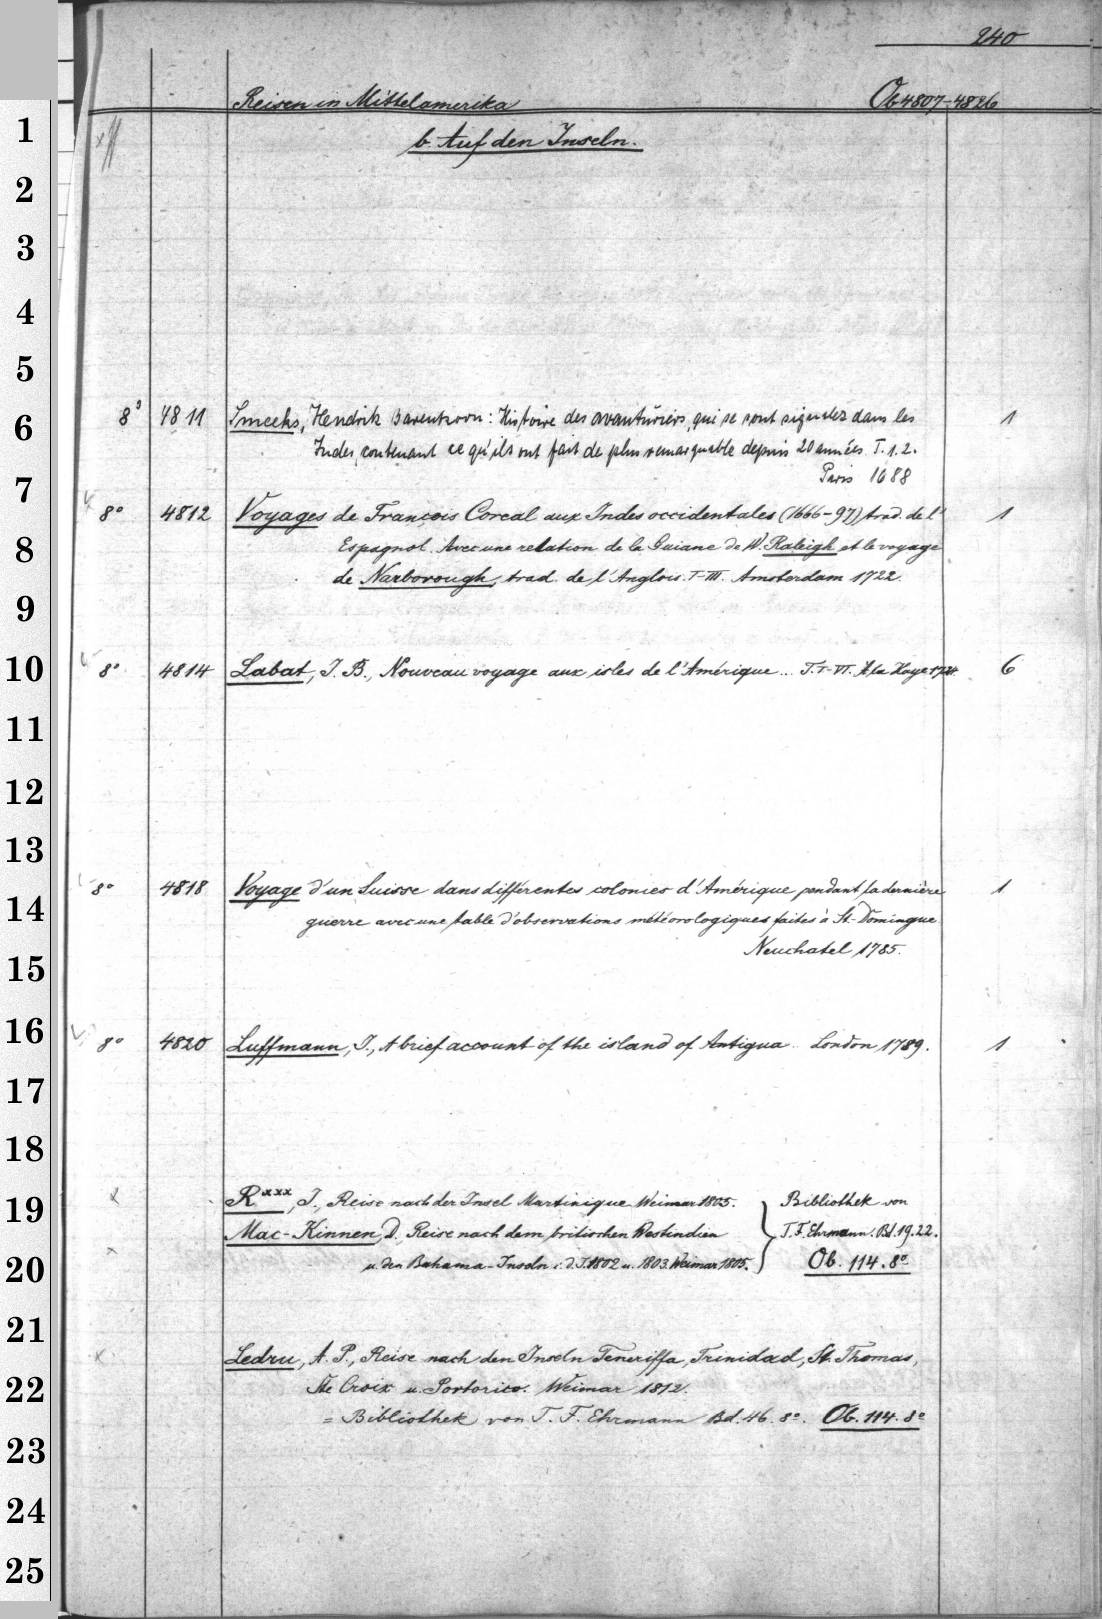 240
Reisen in Mittelamerika Ob 4807-4826
b. Auf den Inseln.
8° 4811 Smeeks, Hendrik Barentzoon: Histoire des avanturiers, qui se sont signalez dans les 1
Indes, contenant ce qu'ils ont fait de plus remarquable depuis 20 années. T. 1. 2.
Paris 1688
8° 4812 Voyages de François Coreal aux Indes occidentales (1666-97) trad. de l' 1
Espagnol. Avec une relation de la Guiane de W. Raleigh et le voyage
de Narborough, trad. de l'Anglois. T-III. Amsterdam 1722.
8° 4814 Labat, J. B., Nouveau voyage aux isles de l'Amérique... T. I-VI. A la Haye 1724. 6
8° 4818 Voyage d'un Suisse dans différentes colonies d'Amérique pendant la dernière 1
guerre avec une table d'observations météorologiques faites à St. Domingue
Neuchatel 1785.
8° 4820 Luffmann, J., A brief account of the island of Antigua. London 1789. 1
R xxx, J., Reise nach der Insel Martinique Weimar 1805. Bibliothek von
Mac-Kinnen, D., Reise nach dem britischen Westindien T. F. Ehrmann. Bd. 19. 22.
u. den Bahama-Inseln i. d. J. 1802 u. 1803. Weimar 1805. Ob. 114. 8°
Ledru, A. P., Reise nach den Inseln Teneriffa, Trinidad, St. Thomas,
Ste Croix u. Portorico. Weimar 1812.
= Bibliothek von T. F. Ehrmann Bd. 46. 8°. Ob. 114. 8°
1
2
3
4
5
6
7
8
9
10
11
12
13
14
15
16
17
18
19
20
21
22
23
24
25